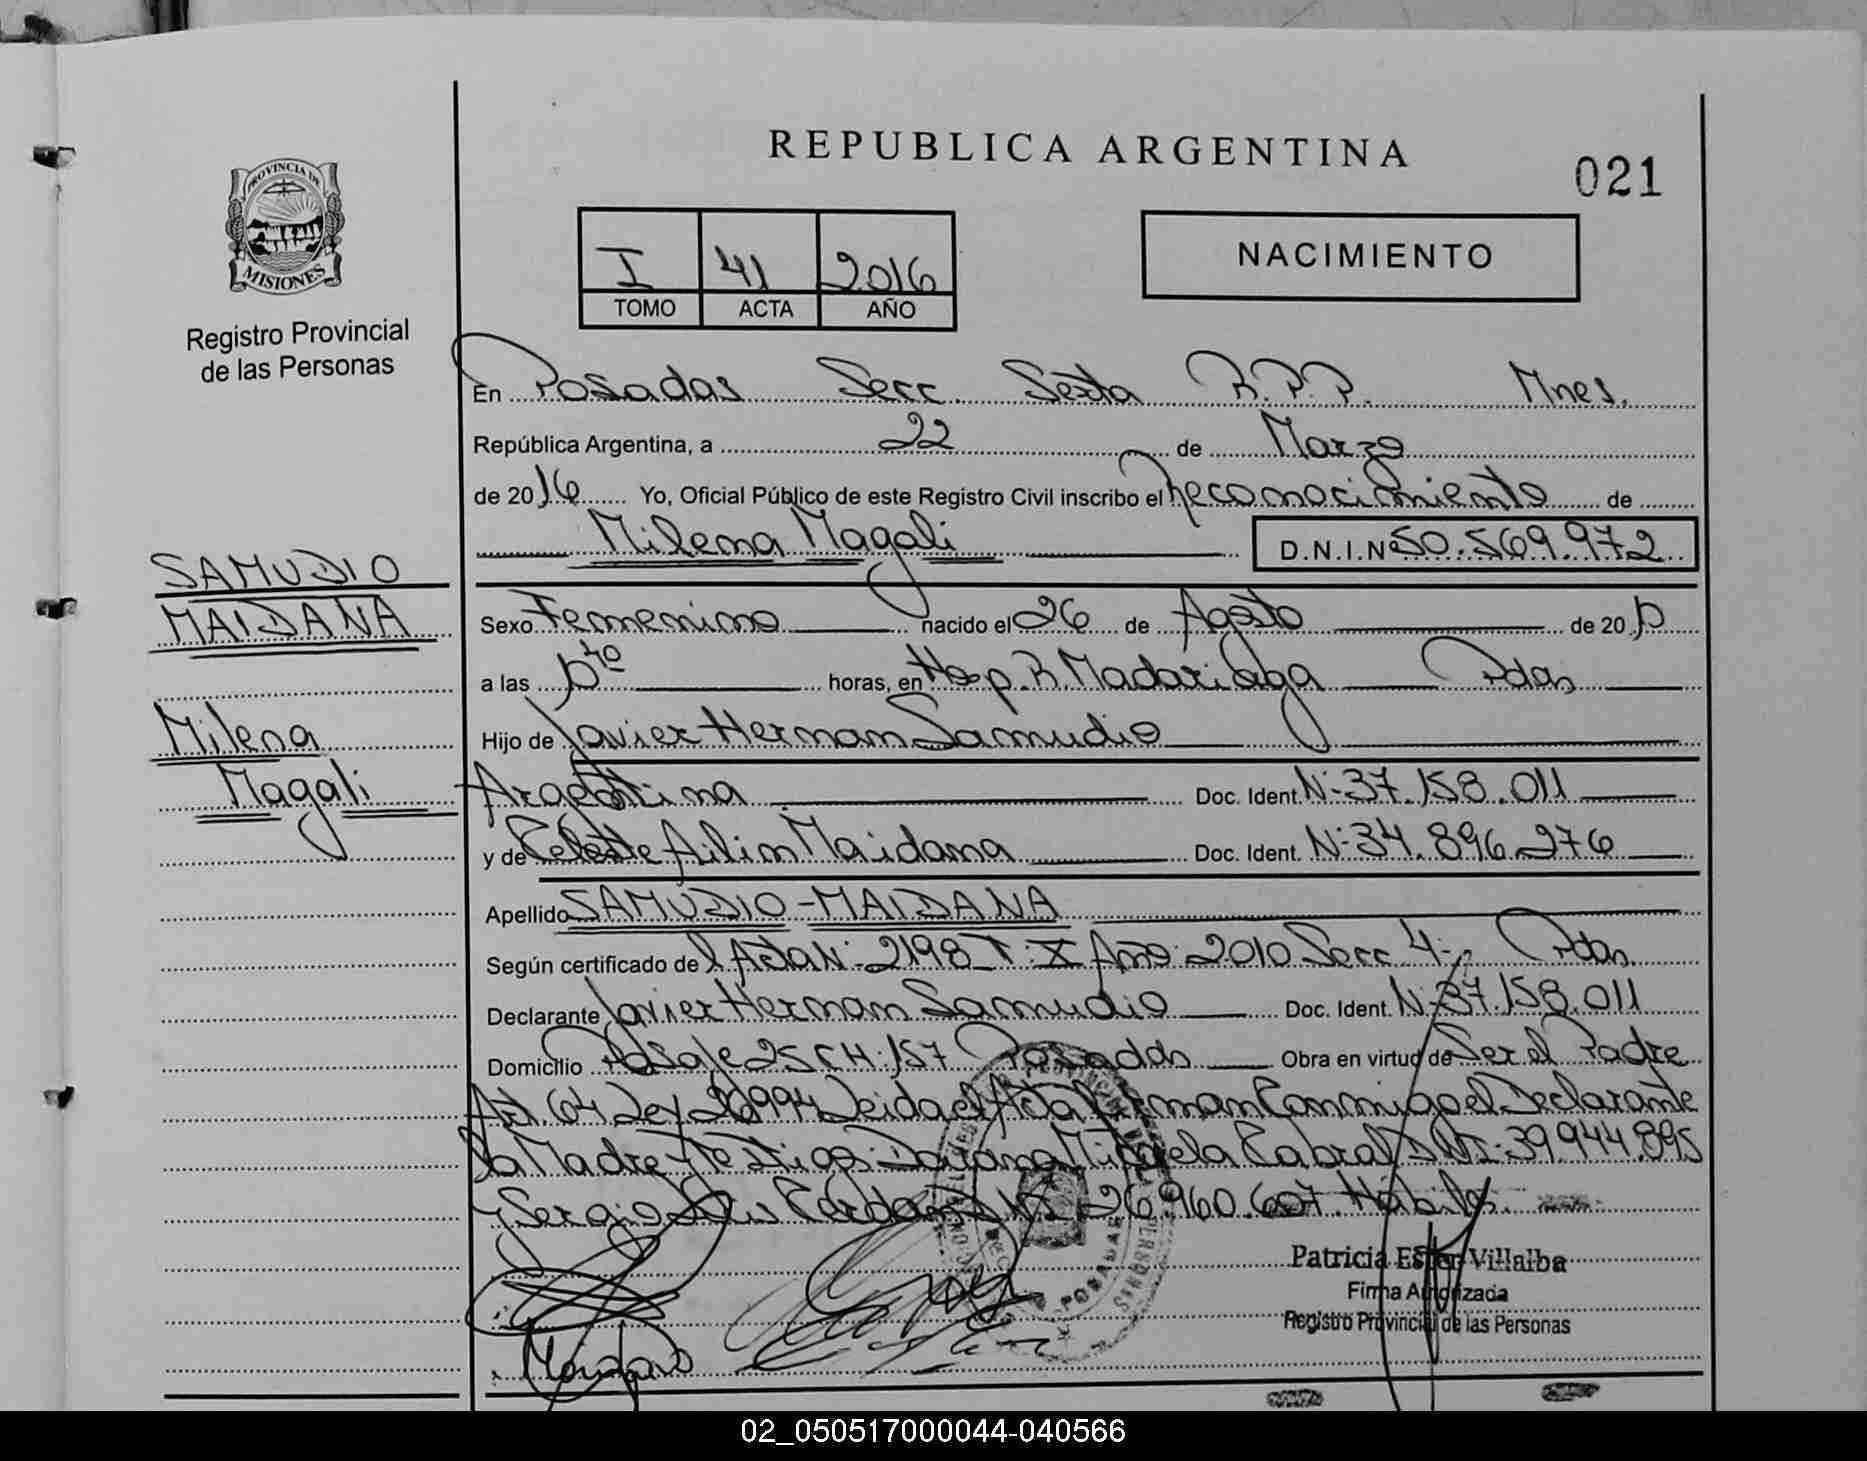 REPUBLICA ARGENTINA
021
PROVINCIA DE
MISIONES
Registro Provincial
de las Personas
I 41 2016
TOMO ACTA AÑO
NACIMIENTO
En Posadas Secc. Sexta R.P.P. Mnes.
República Argentina, a 22 de Marzo
de 2016 Yo, Oficial Público de este Registro Civil inscribo el Reconocimiento de
Milena Magali D.N.I.Nº 50.569.972
SAMUDIO
MAIDANA
Milena
Magali
Sexo Femenino nacido el 26 de Agosto de 2010
a las horas, en Hosp. R. Madariaga Pdas
Hijo de Javier Hernan Samudio
Argentina Doc. Ident. N: 37.158.011
y de Celeste Ailin Maidana Doc. Ident. N: 34.896.276
Apellido SAMUDIO-MAIDANA
Según certificado del Acta N: 2198 T: X Año: 2010 Secc 4: Pdas
Declarante Javier Hernan Samudio Doc. Ident. N: 37.158.011
Domicilio Pasaje 25 CH: 157 Posadas Obra en virtud de Ser el Padre
Art. 64 Ley 26994 Leida el Acta Firman Conmigo el Declarante
la Madre y Testigos Daiana Micaela Cabral DNI: 39.944.895
y Sergio Luis DNI: 26.960.607 Habiles.
POSADAS
Patricia Ester Villalba
Firma Autorizada
Registro Provincial de las Personas
02_050517000044-040566